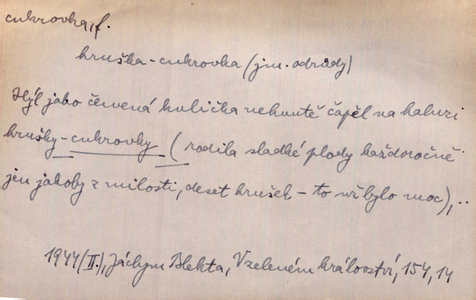 cukrovka, f.
hruška-cukrovka (jm. odrůdy)
Hýl jako červená kulička nehnutě čapěl na haluzi
hrušky-cukrovky (rodila sladké plody každoročně
jen jakoby z milosti, deset hrušek - to už bylo moc), ..
1944 (II.), Jáchym Blekta, V zeleném království, 154, 14